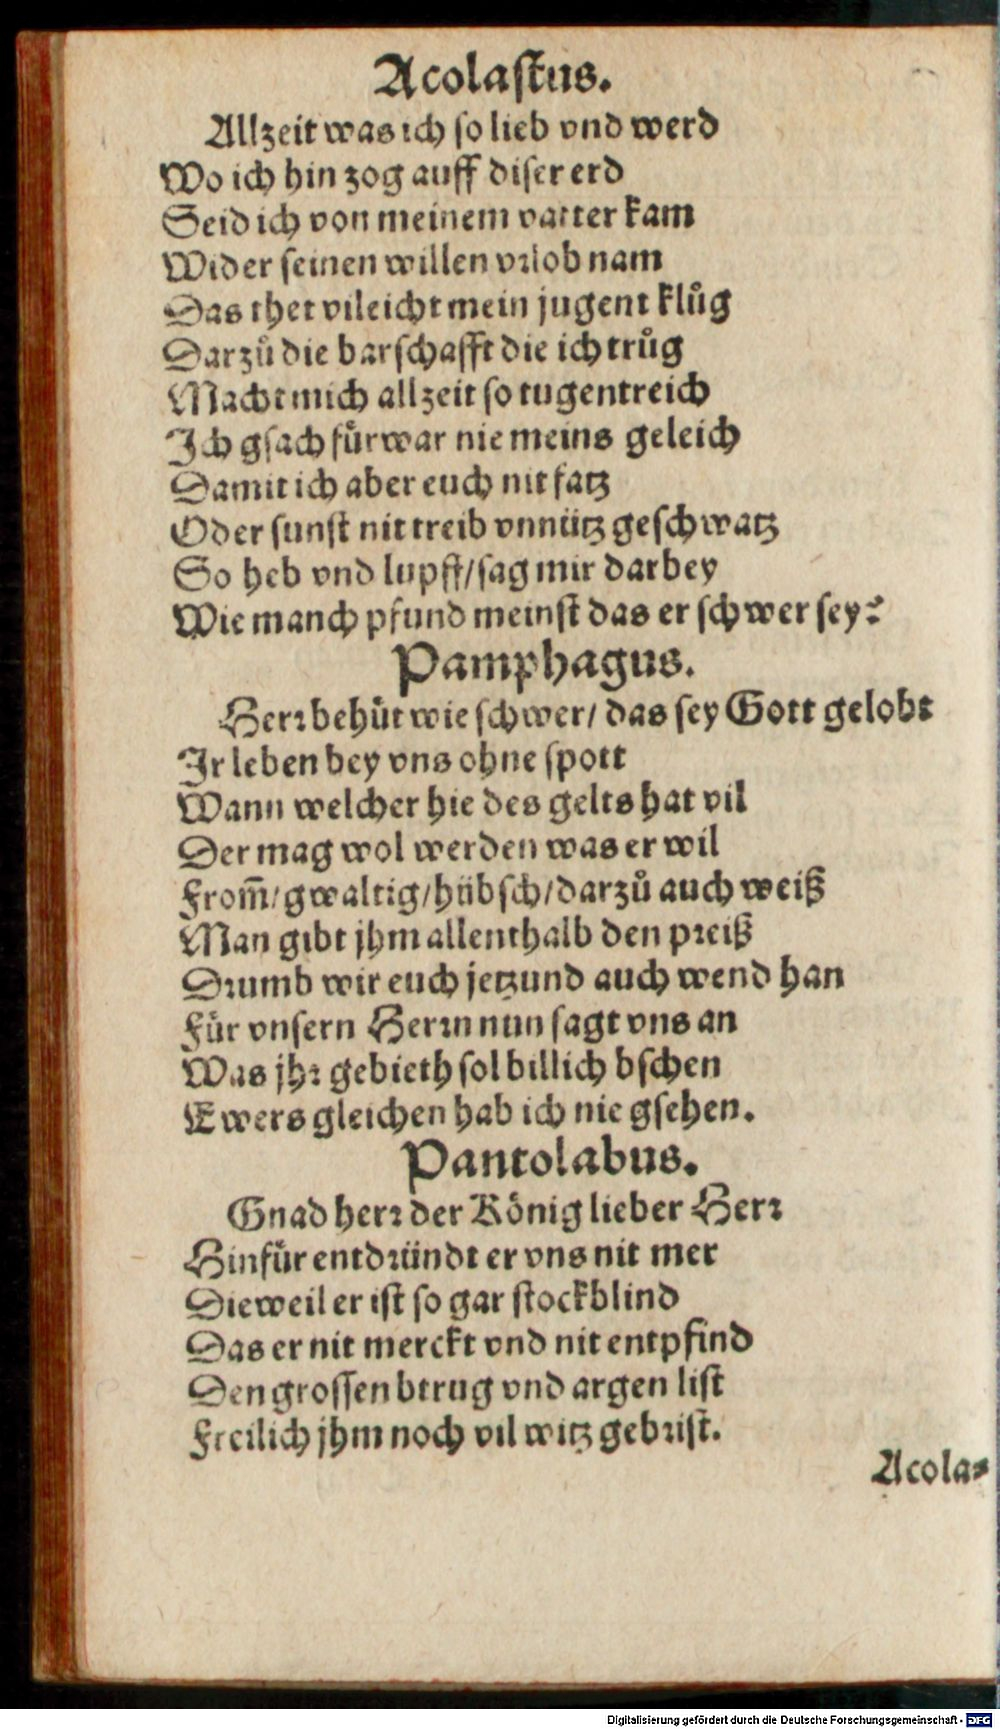 Acolastus.
Allzeit was ich so lieb vnd werd
Wo ich hin zog auff diser erd
Seid ich von meinem vatter kam
Wider seinen willen vrlob nam
Das thet vileicht mein jugent klůg
Darzů die barschafft die ich trůg
Macht mich allzeit so tugentreich
Ich gsach fürwar nie meins geleich
Damit ich aber euch nit fatz
Oder sunst nit treib vnnütz geschwatz
So heb vnd lupff/ sag mir darbey
Wie manch pfund meinst das er schwer sey?
Pamphagus.
Herr behüt wie schwer/ das sey Gott gelobt
Ir leben bey vns ohne spott
Wann welcher hie des gelts hat vil
Der mag wol werden was er wil
From̃/ gwaltig/ hübsch/ darzů auch weiß
Man gibt jhm allenthalb den preiß
Drumb wir euch jetzund auch wend han
Für vnsern Herrn nun sagt vns an
Was jhr gebieth sol billich bschen
Ewers gleichen hab ich nie gsehen.
Pantolabus.
Gnad herr der König lieber Herr
Hinfür entdründt er vns nit mer
Dieweil er ist so gar stockblind
Das er nit merckt vnd nit entpfind
Den grossen btrug vnd argen list
Freilich jhm noch vil witz gebrist.
Acola⸗
Digitalisierung gefördert durch die Deutsche Forschungsgemeinschaft - DFG